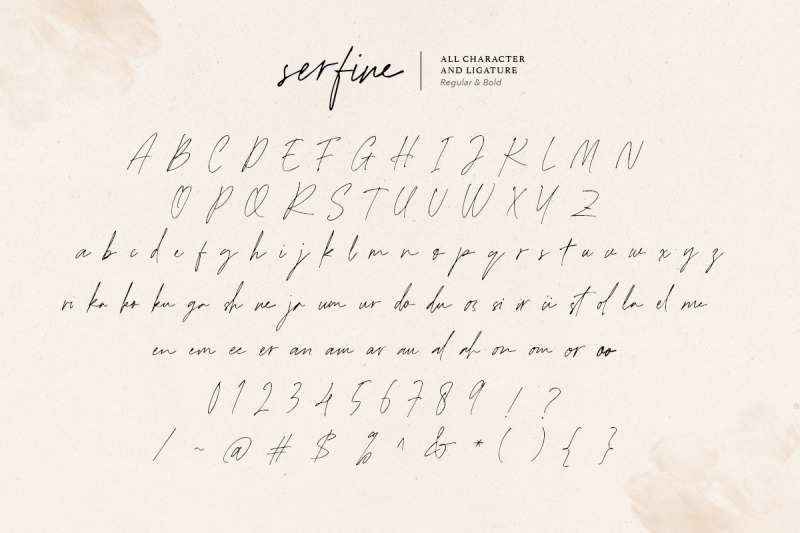 serfine
ALL CHARACTER
AND LIGATURE
Regular & Bold
A B C D E F G H I J K L M N
O P Q R S T U V W X Y Z
a b c d e f g h i j k l m n o p q r s t u v w x y z
ri ka ko ku ga sh ne ja um ur do du os si ir ii st ol la el me
en em ee er an am ar au al ah on om or oo
0 1 2 3 4 5 6 7 8 9 ! ?
/ ~ @ # $ % ^ & * ( ) { }